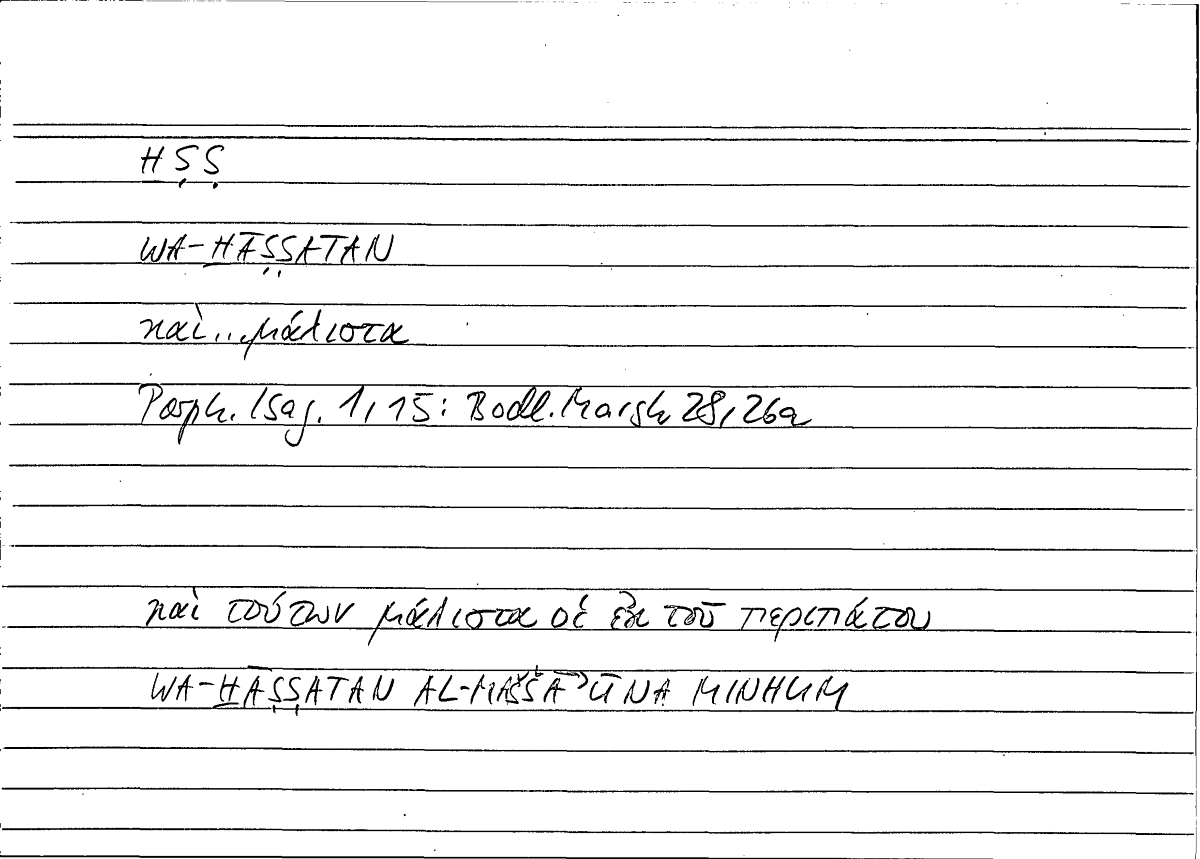 H̱ṢṢ
WA-H̱ĀṢṢATAN
καὶ...μάλιστα
Porph. Isag. 1,15: Bodl. Marsh 28,26a
καὶ τούτων μάλιστα οἱ ἐκ τοῦ περιπάτου
WA-H̱ĀṢṢATAN AL-MAŠŠĀʾŪNA MINHUM